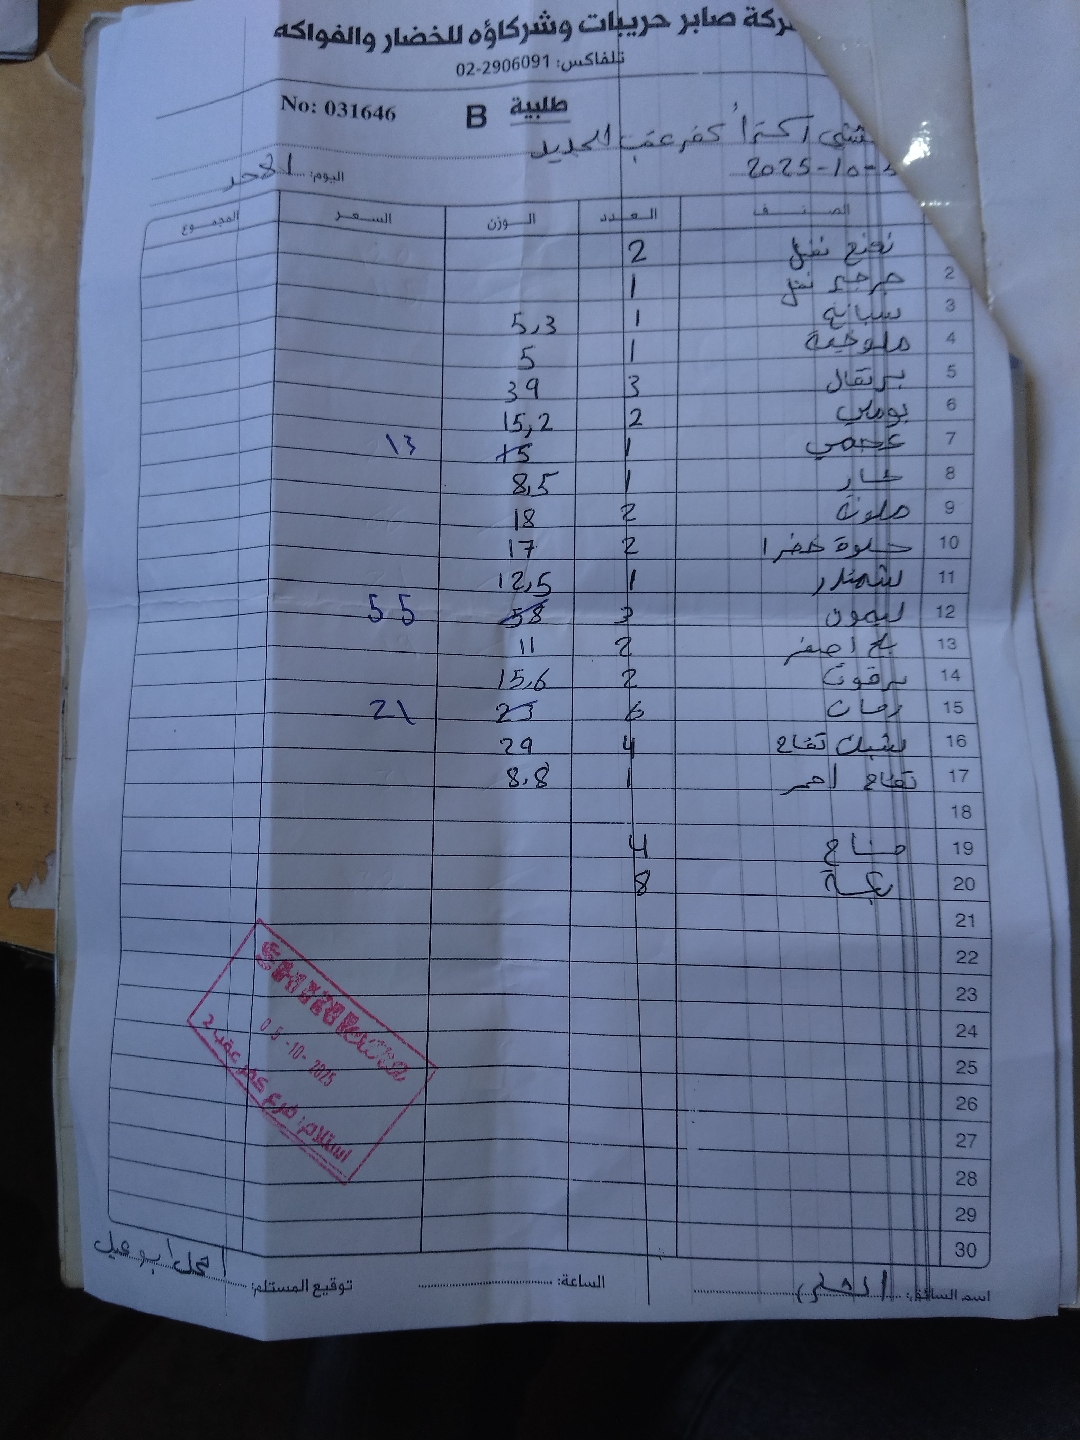 ركة صابر حريبات وشركاؤه للخضار والفواكه
تلفاكس: 02-2906091
No: 031646 B طلبية
اكسترا كفر عقب الجديد
2025-10-
اليوم: الاحد
الصنف العدد الوزن السعر المجموع
نعنع نفل 2
2 جرجير نفل 1
3 سبانخ 1 5,3
4 ملوخية 1 5
5 برتقال 3 39
6 بوملي 2 15,2
7 عجمي 1 15 13
8 حار 1 8,5
9 ملون 2 18
10 حلوة خضرا 2 17
11 شمندر 1 12,5
12 ليمون 3 58 55
13 بلح اصفر 2 11
14 برقوق 2 15,6
15 رمان 6 23 21
16 تفاح 4 29
17 تفاح احمر 1 8,8
18
19 4
20 8
21
22
23
24
25
26
27
28
29
30
05-10-2025
استلام: فرع كفر عقب 2
اسم السائق:
الساعة:
توقيع المستلم: